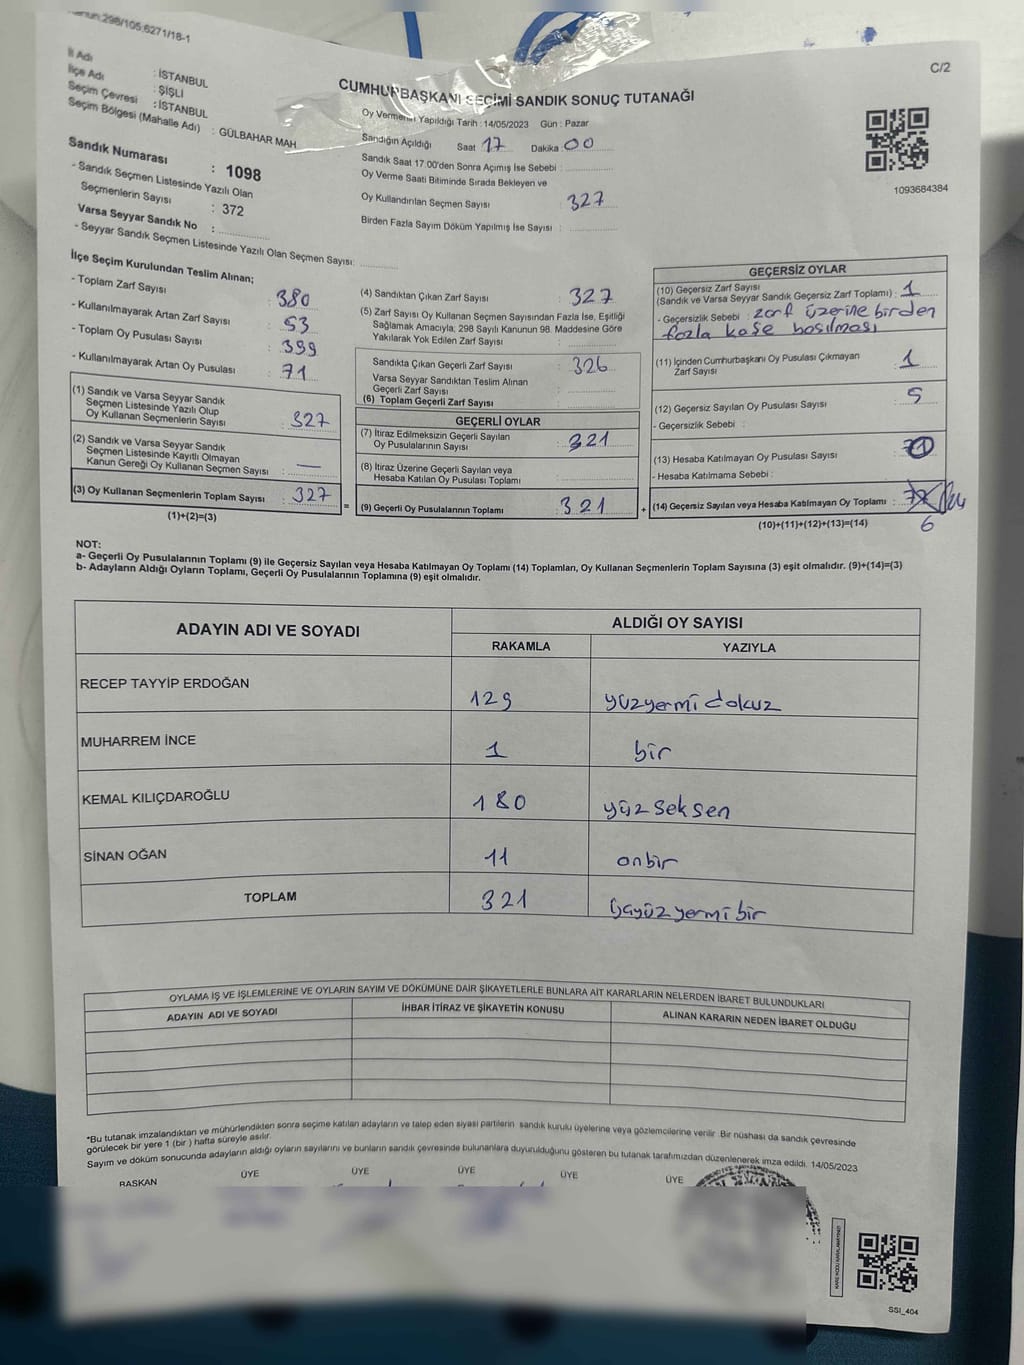 Kanun:298/105,6271/18-1
C/2
İl Adı : İSTANBUL
İlçe Adı : ŞİŞLİ
Seçim Çevresi : İSTANBUL
Seçim Bölgesi (Mahalle Adı) : GÜLBAHAR MAH
Sandık Numarası : 1098
- Sandık Seçmen Listesinde Yazılı Olan
Seçmenlerin Sayısı : 372
Varsa Seyyar Sandık No :
- Seyyar Sandık Seçmen Listesinde Yazılı Olan Seçmen Sayısı:
CUMHURBAŞKANI SEÇİMİ SANDIK SONUÇ TUTANAĞI
Oy Vermenin Yapıldığı Tarih : 14/05/2023 Gün : Pazar
Sandığın Açıldığı Saat 17 Dakika 00
Sandık Saat 17.00'den Sonra Açımış İse Sebebi :
Oy Verme Saati Bitiminde Sırada Bekleyen ve
Oy Kullandırılan Seçmen Sayısı : 327
Birden Fazla Sayım Döküm Yapılmış İse Sayısı :
1093684384
İlçe Seçim Kurulundan Teslim Alınan;
- Toplam Zarf Sayısı : 380
- Kullanılmayarak Artan Zarf Sayısı : 53
- Toplam Oy Pusulası Sayısı : 399
- Kullanılmayarak Artan Oy Pusulası : 71
(1) Sandık ve Varsa Seyyar Sandık
Seçmen Listesinde Yazılı Olup
Oy Kullanan Seçmenlerin Sayısı : 327
(2) Sandık ve Varsa Seyyar Sandık
Seçmen Listesinde Kayıtlı Olmayan
Kanun Gereği Oy Kullanan Seçmen Sayısı : —
(3) Oy Kullanan Seçmenlerin Toplam Sayısı : 327
(1)+(2)=(3)
(4) Sandıktan Çıkan Zarf Sayısı : 327
(5) Zarf Sayısı Oy Kullanan Seçmen Sayısından Fazla İse, Eşitliği
Sağlamak Amacıyla; 298 Sayılı Kanunun 98. Maddesine Göre
Yakılarak Yok Edilen Zarf Sayısı :
Sandıkta Çıkan Geçerli Zarf Sayısı : 326
Varsa Seyyar Sandıktan Teslim Alınan
Geçerli Zarf Sayısı :
(6) Toplam Geçerli Zarf Sayısı
GEÇERLİ OYLAR
(7) İtiraz Edilmeksizin Geçerli Sayılan
Oy Pusulalarının Sayısı : 321
(8) İtiraz Üzerine Geçerli Sayılan veya
Hesaba Katılan Oy Pusulası Toplamı :
= (9) Geçerli Oy Pusulalarının Toplamı : 321
GEÇERSİZ OYLAR
(10) Geçersiz Zarf Sayısı
(Sandık ve Varsa Seyyar Sandık Geçersiz Zarf Toplamı) : 1
- Geçersizlik Sebebi : zarf üzerine birden
fazla kaşe basılması
(11) İçinden Cumhurbaşkanı Oy Pusulası Çıkmayan
Zarf Sayısı : 1
(12) Geçersiz Sayılan Oy Pusulası Sayısı : 5
- Geçersizlik Sebebi :
(13) Hesaba Katılmayan Oy Pusulası Sayısı :
- Hesaba Katılmama Sebebi :
+ (14) Geçersiz Sayılan veya Hesaba Katılmayan Oy Toplamı :
6
(10)+(11)+(12)+(13)=(14)
NOT:
a- Geçerli Oy Pusulalarının Toplamı (9) ile Geçersiz Sayılan veya Hesaba Katılmayan Oy Toplamı (14) Toplamları, Oy Kullanan Seçmenlerin Toplam Sayısına (3) eşit olmalıdır. (9)+(14)=(3)
b- Adayların Aldığı Oyların Toplamı, Geçerli Oy Pusulalarının Toplamına (9) eşit olmalıdır.
ADAYIN ADI VE SOYADI
ALDIĞI OY SAYISI
RAKAMLA YAZIYLA
RECEP TAYYİP ERDOĞAN 129 yüzyermi dokuz
MUHARREM İNCE 1 bir
KEMAL KILIÇDAROĞLU 180 yüz seksen
SİNAN OĞAN 11 onbir
TOPLAM 321 üçyüz yermi bir
OYLAMA İŞ VE İŞLEMLERİNE VE OYLARIN SAYIM VE DÖKÜMÜNE DAİR ŞİKAYETLERLE BUNLARA AİT KARARLARIN NELERDEN İBARET BULUNDUKLARI
ADAYIN ADI VE SOYADI İHBAR İTİRAZ VE ŞİKAYETİN KONUSU ALINAN KARARIN NEDEN İBARET OLDUĞU
*Bu tutanak imzalandıktan ve mühürlendikten sonra seçime katılan adayların ve talep eden siyasi partilerin sandık kurulu üyelerine veya gözlemcilerine verilir. Bir nüshası da sandık çevresinde
görülecek bir yere 1 (bir) hafta süreyle asılır.
Sayım ve döküm sonucunda adayların aldığı oyların sayılarını ve bunların sandık çevresinde bulunanlara duyurulduğunu gösteren bu tutanak tarafımızdan düzenlenerek imza edildi. 14/05/2023
BAŞKAN ÜYE ÜYE ÜYE ÜYE ÜYE
SSI_404